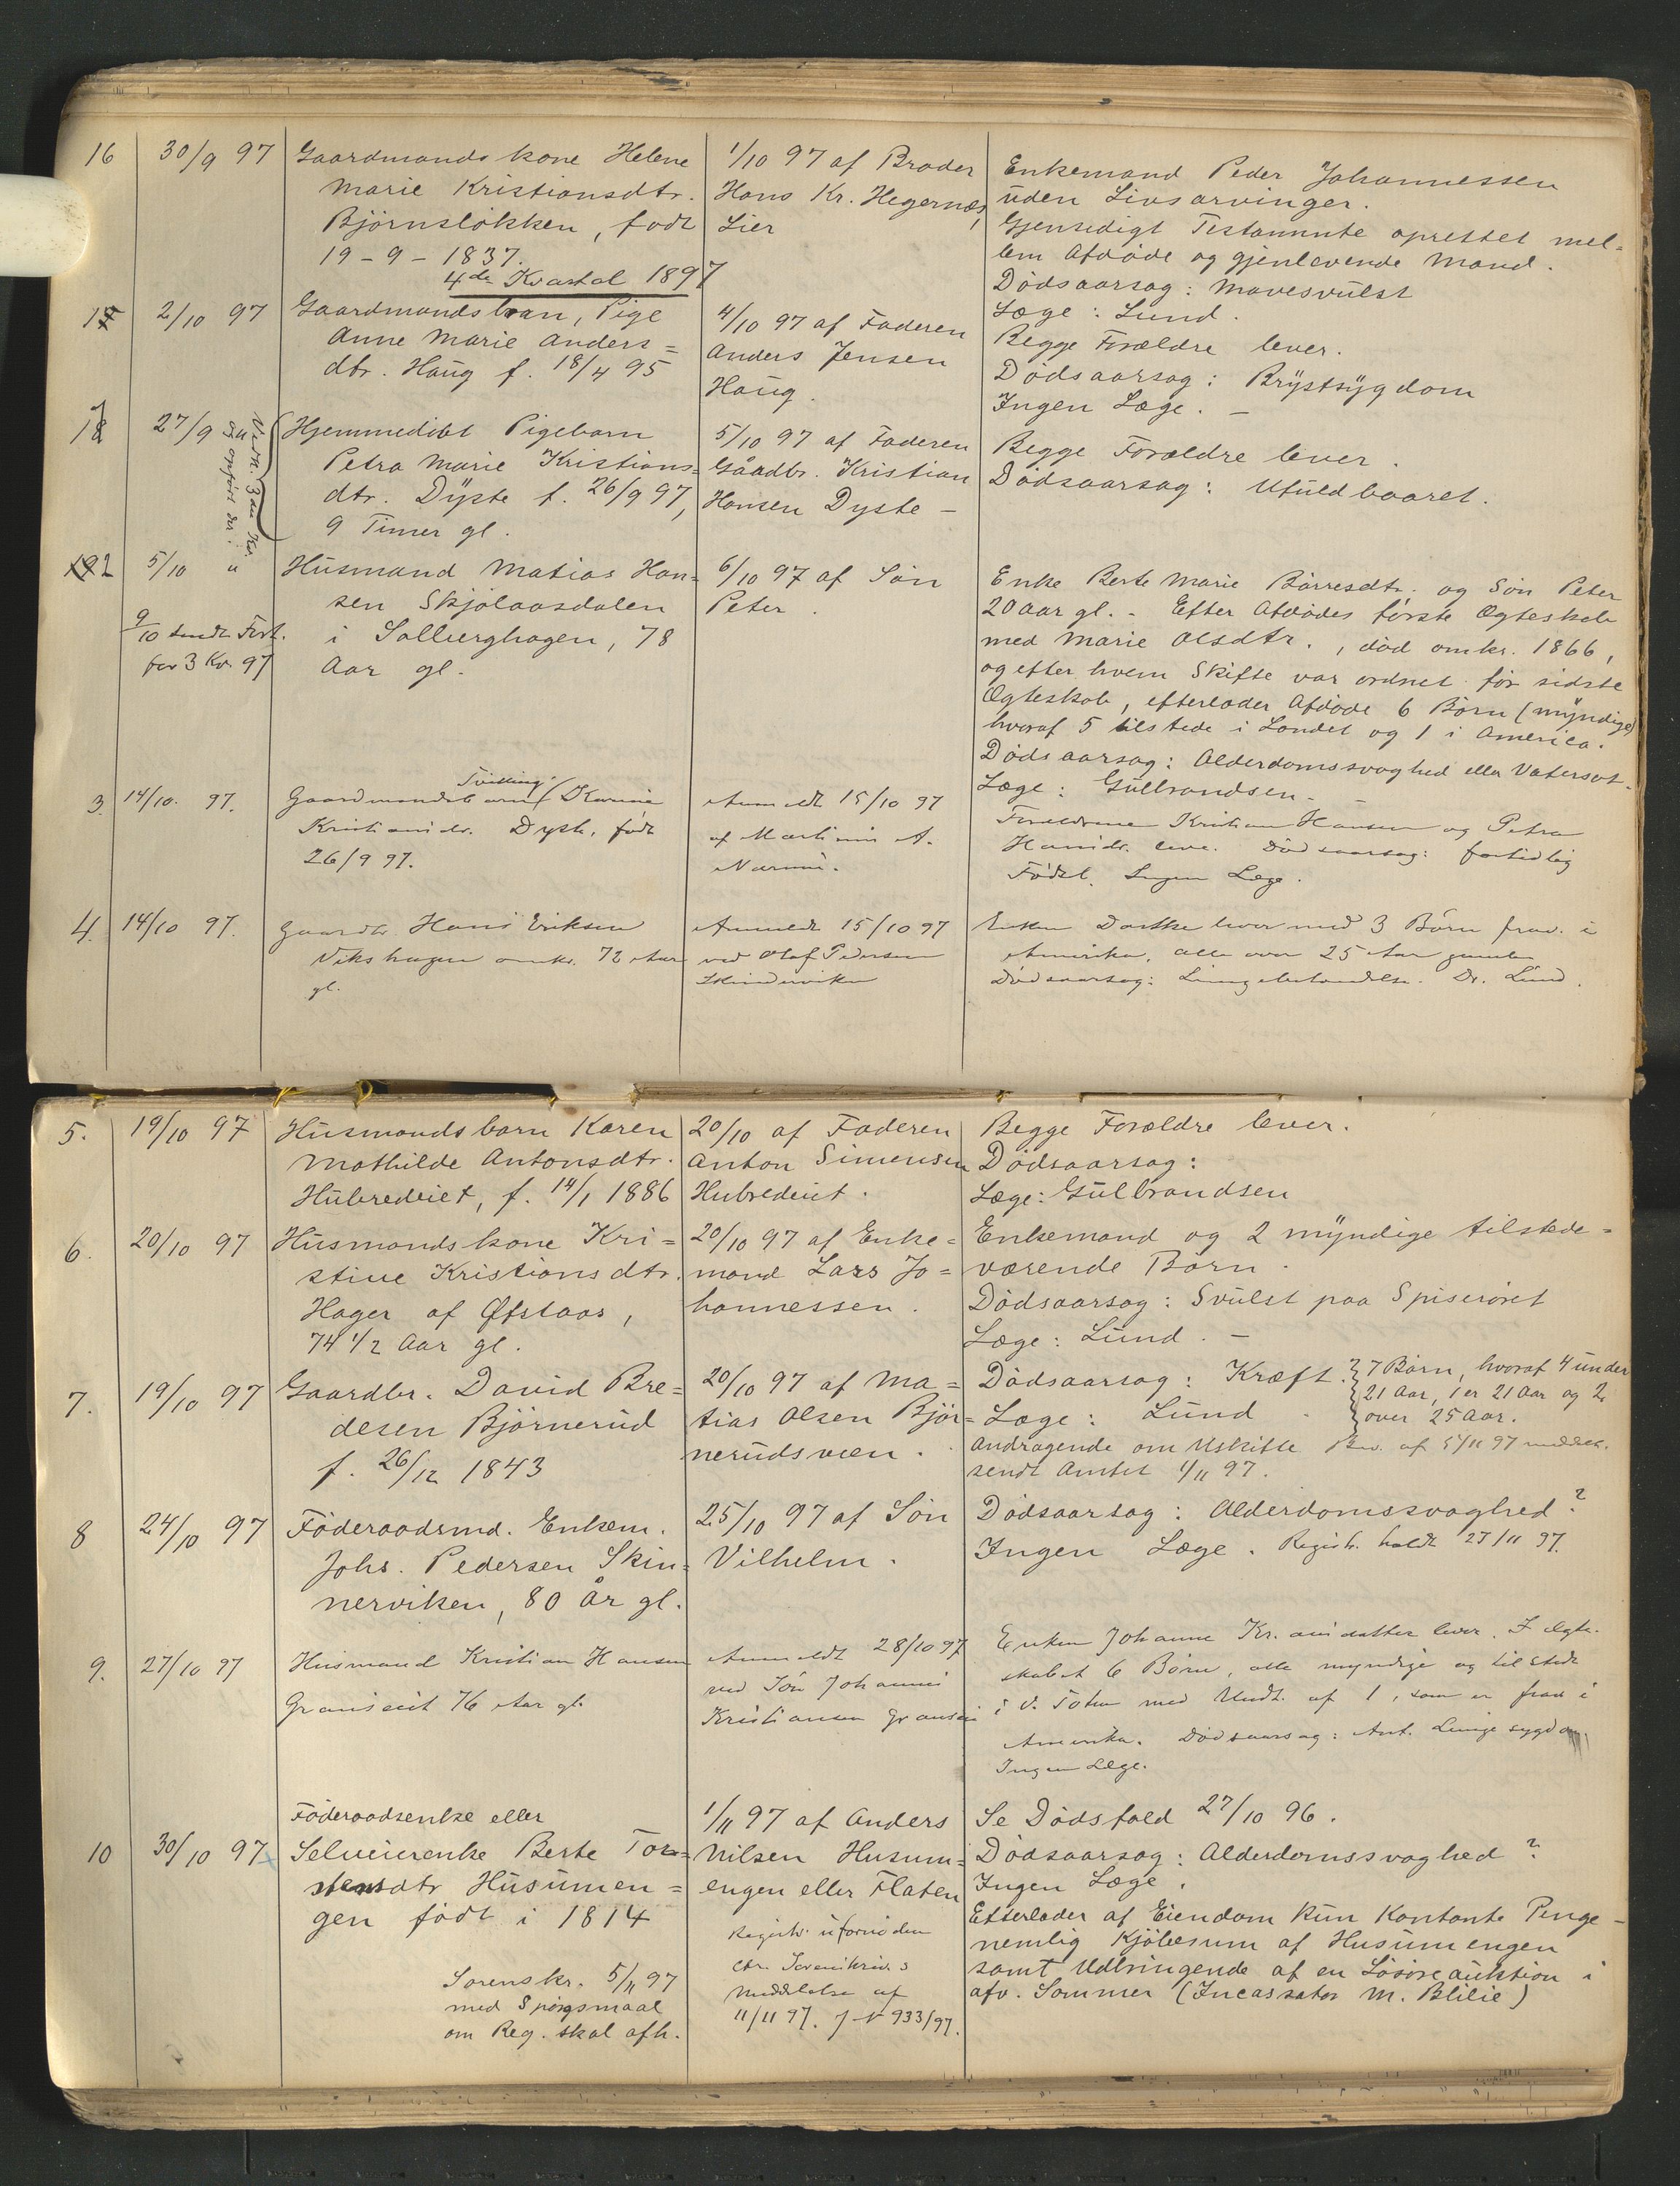 16
30/9 97
Gaardmandskone Helene
Marie Kristiansdtr.
Björnslökken, født
19-9-1837.
1/10 97 af Broder
Hans Kr. Hegernæs,
Lier
Enkemand Peder Johannessen
uden Livsarvinger.
Gjensidigt Testamente oprettet mel-
lem Afdøde og gjenlevende Mand.
Dødsaarsag: Mavesvulst
Læge: Lund.
4de Kvartal 1897
2/10 97
Gaardmandsbarn, Pige
Anne Marie Anders=
dtr. Haug f. 18/4 95
4/10 97 af Faderen
Anders Jensen
Haug.
Begge Forældre lever.
Dødsaarsag: Brystsygdom
Ingen Læge. —
27/9
Hjemmedøbt Pigebarn
Petra Marie Kristians=
dtr. Dyste f. 26/9 97,
9 Timer gl.
5/10 97 af Faderen
Gaadbr. Kristian
Hansen Dyste —
Begge Forældre lever.
Dødsaarsag: Ufuldbaaret.
2
5/10 "
9/10 sendt Fort.
for 3 Kv. 97
Husmand Matias Han=
sen Skjølaasdalen
i Sollierghagen, 78
Aar gl.
6/10 97 af Søn
Peter.
Enke Berte Marie Börresdtr. og Søn Peter
20 Aar gl. - Efter Afdødes første Ægteskab
med Marie Olsdtr., død omkr. 1866,
og efter hvem Skifte var ordnet før sidste
Ægteskab, efterlader Afdøde 6 Børn (myndige)
hvoraf 5 tilstede i Landet og 1 i America.
Dødsaarsag: Alderdomssvaghed eller Vatersot.
Læge: Gulbrandsen. —
3.
14/10. 97.
Tvilling
Gaardmandsbarn (Karine
Kristiansdr. Dyste, født
26/9 97.
Anmeldt 15/10 97
af Martinius A.
Forældrene Kristian Hansen og Petra
Hansdr. leve. Dødsaarsag: fortidlig
Født. Ingen Læge.
4.
14/10 97.
Gaardbr. Hans Eriksen
Vikshagen omkr. 72 Aar
gl.
Anmeldt 15/10 97
ved Olaf Pedersen
Skinderviken
Enken Dorthe lever med 3 Børn frav. i
Amerika, alle over 25 Aar gamle
Dødsaarsag: Lungebetændelse. Dr. Lund.
5.
19/10 97
Husmandsbarn Karen
Mathilde Antonsdtr.
Hubredeiet, f. 14/1 1886
20/10 af Faderen
Anton Simensen
Hubredeiet.
Begge Forældre lever.
Dødsaarsag:
Læge: Gulbrandsen
6.
20/10 97
Husmandskone Kri=
stine Kristiansdtr.
Hager af Øfstaas,
74 1/2 Aar gl.
20/10 97 af Enke=
mand Lars Jo=
hannessen.
Enkemand og 2 myndige tilstede=
værende Børn.
Dødsaarsag: Svulst paa Spiserøret
Læge: Lund. —
7.
19/10 97
Gaardbr. David Bre=
desen Björnerud
f. 26/12 1843
20/10 97 af Ma=
tias Olsen Björ=
nerudsveen.
Dødsaarsag: Kræft.
Læge: Lund.
7 Børn, hvoraf 4 under
21 Aar, 1 er 21 Aar og 2
over 25 Aar.
Andragende om Uskifte
sendt Amtet 1/11 97.
8
24/10 97
Föderaadsmd. Enkem.
Johs. Pedersen Skin=
nerviken, 80 År gl.
25/10 97 af Søn
Vilhelm.
Dødsaarsag: Alderdomssvaghed?
Ingen Læge. Registr. holdt 25/11 97.
9.
27/10 97
Husmand Kristian Hansen
Granseiet 76 Aar gl.
Anmeldt 28/10 97
ved Søn Johannes
Kristiansen
Enken Johanne Kr. lever. I Ægte-
skabet 6 Børn, alle myndige og tilstede
i V. Toten med Undt. af 1, som er frav i
Amerika. Dødsaarsag: Ant. Lungesygdom
Ingen Læge.
10
30/10 97
Föderaadsenke eller
Selveierenke Berte Tor=
stensdtr Husumen=
gen født i 1814
Sorenskr. 5/11 97
med Spørgsmaal
om Reg. skal afh.
1/11 97 af Anders
Nilsen Husum=
engen eller Flaten
Registr. ufornøden
Meddelelse af
11/11 97. J N 933/97.
Se Dødsfald 27/10 96.
Dødsaarsag: Alderdomssvaghed?
Ingen Læge.
Efterlader af Eiendom kun Kontante Penge -
nemlig Kjøbesum af Husumengen
samt Udbringende af en Løsøreauktion i
afv. Sommer (Incassator M. Blilie)